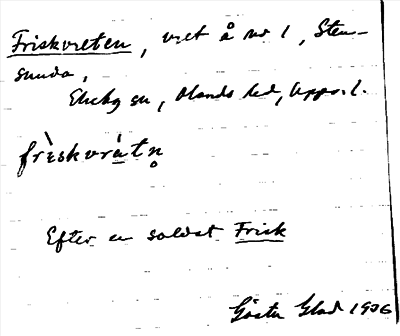 Friskvreten, vret å no 1, Sten-
sunda,
Ekeby sn, Olands hd, Upps. l.
frìskvràtn̥
Efter en soldat Frisk
Gösta Glad 1906